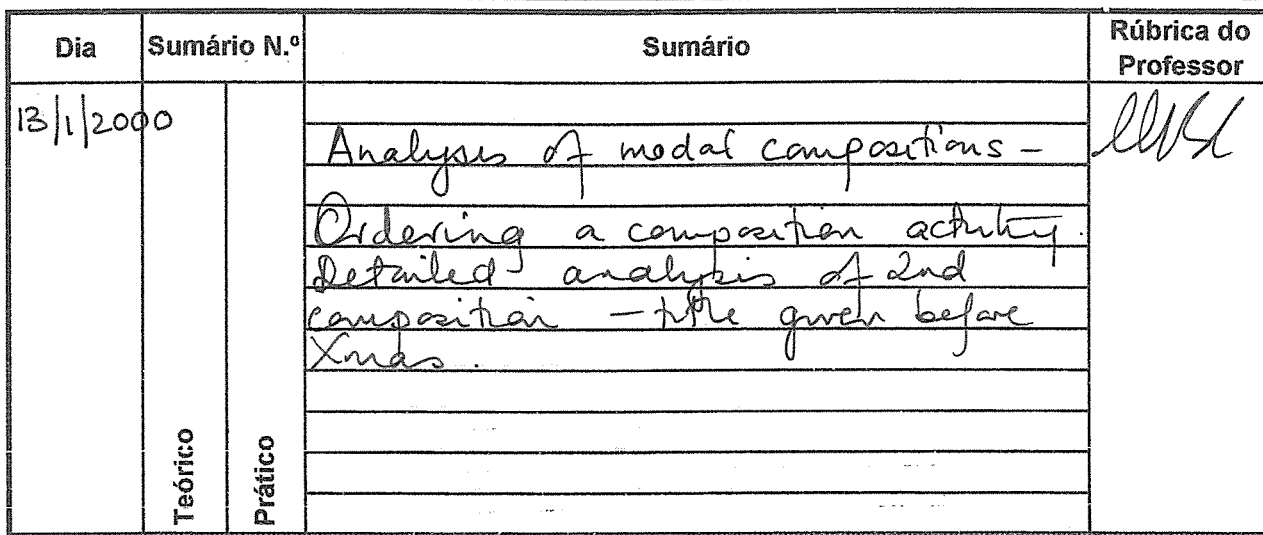 Dia Sumário N.º Sumário Rúbrica do Professor
13/1/2000
Analysis of modal compositions -
Ordering a composition activity.
Detailed analysis of 2nd
composition - title given before
Xmas.
Teórico
Prático